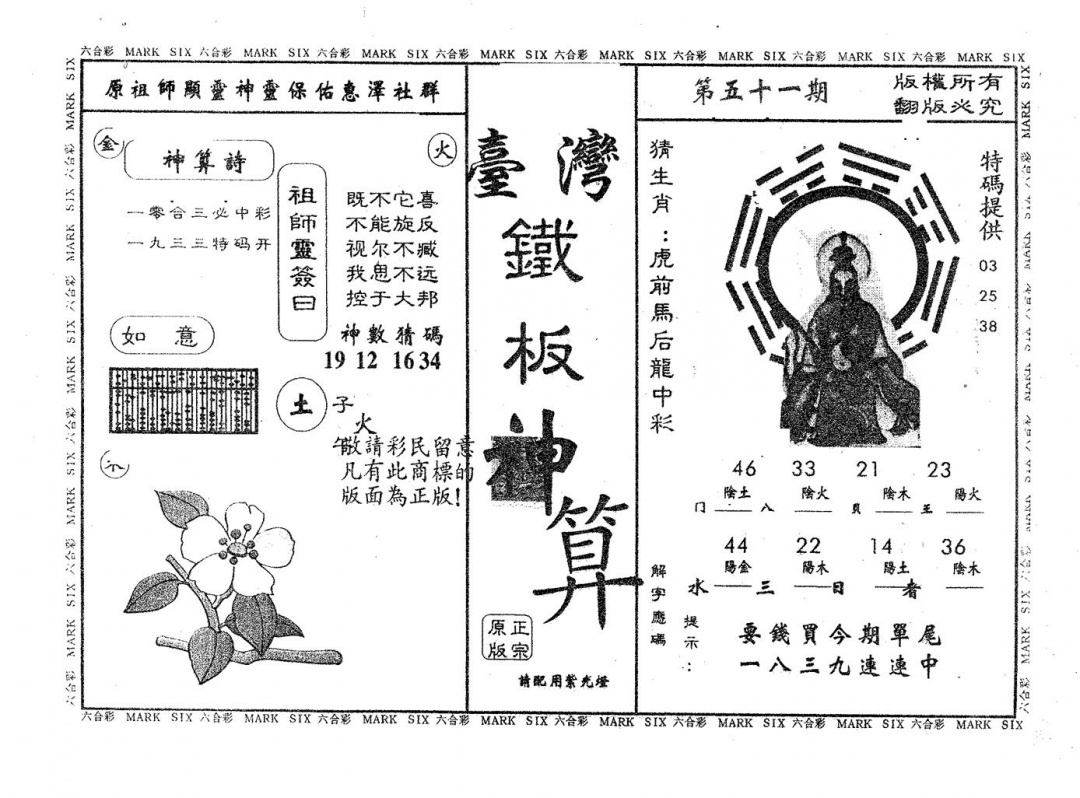 六合彩 MARK SIX 六合彩 MARK SIX 六合彩 MARK SIX 六合彩 MARK SIX 六合彩 MARK SIX 六合彩 MARK SIX 六合彩 MARK SIX 六合彩 MARK SIX
原祖師顯靈神靈保佑惠澤社群
金
火
神算詩
一零合三必中彩
一九三三特码开
祖師靈簽曰
既不它喜
不能旋反
视尔不臧
我思不远
控于大邦
神數猜碼
19 12 16 34
如意
土
子
火
午
敬請彩民留意
凡有此商標的
版面為正版!
臺灣
鐵板神算
正宗
原版
請配用紫光燈
第五十一期
版權所有
翻版必究
猜生肖:虎前馬后龍中彩
特碼提供
03
25
38
46 33 21 23
陰土 陰火 陰木 陽火
门 八 貝 王
44 22 14 36
陽金 陽木 陽土 陰木
水 三 日 者
解字應碼
提示:
要錢買今期單尾
一八三九連連中
六合彩 MARK SIX 六合彩 MARK SIX 六合彩 MARK SIX 六合彩 MARK SIX 六合彩 MARK SIX 六合彩 MARK SIX 六合彩 MARK SIX 六合彩 MARK SIX